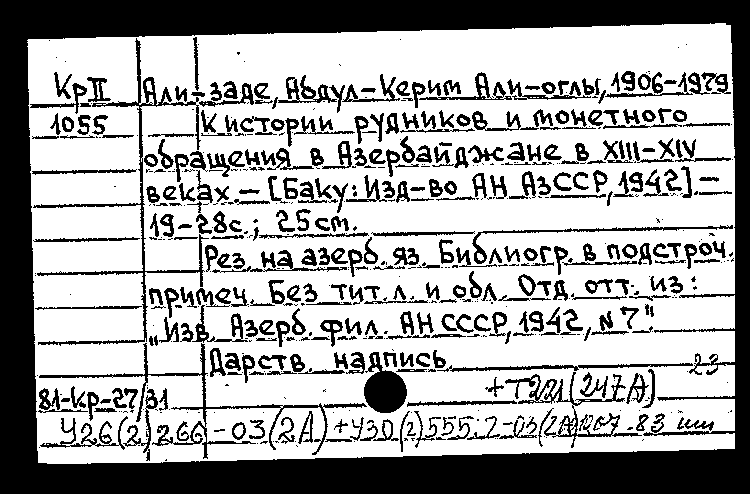 Кр II Али-заде, Абдул-Керим Али-оглы, 1906-1979
1055 К истории рудников и монетного
обращения в Азербайджане в XIII-XIV
веках. — [Баку: Изд-во АН АзССР, 1942]. —
19-28с.; 25см.
Рез. на азерб. яз. Библиогр. в подстроч.
примеч. Без тит. л. и обл. Отд. отт. из:
„Изв. Азерб. фил. АН СССР, 1942, N 7".
Дарств. надпись.
23
81-Кр-27/31 +Т221(247А)
У26(2)266-03(2А)+У30(2)555.7-03(2А)